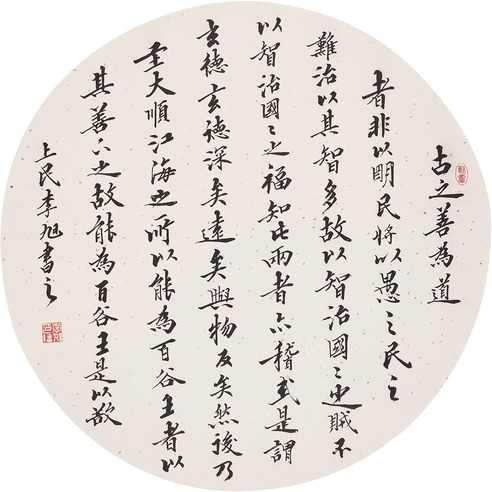 古之善為道
者非以明民將以愚之民之
難治以其智多故以智治國〻之賊不
以智治國〻之福知此兩者亦稽式是謂
玄德玄德深矣遠矣與物反矣然後乃
至大順江海之所以能為百谷王者以
其善下之故能為百谷王是以欲
上民李旭書之